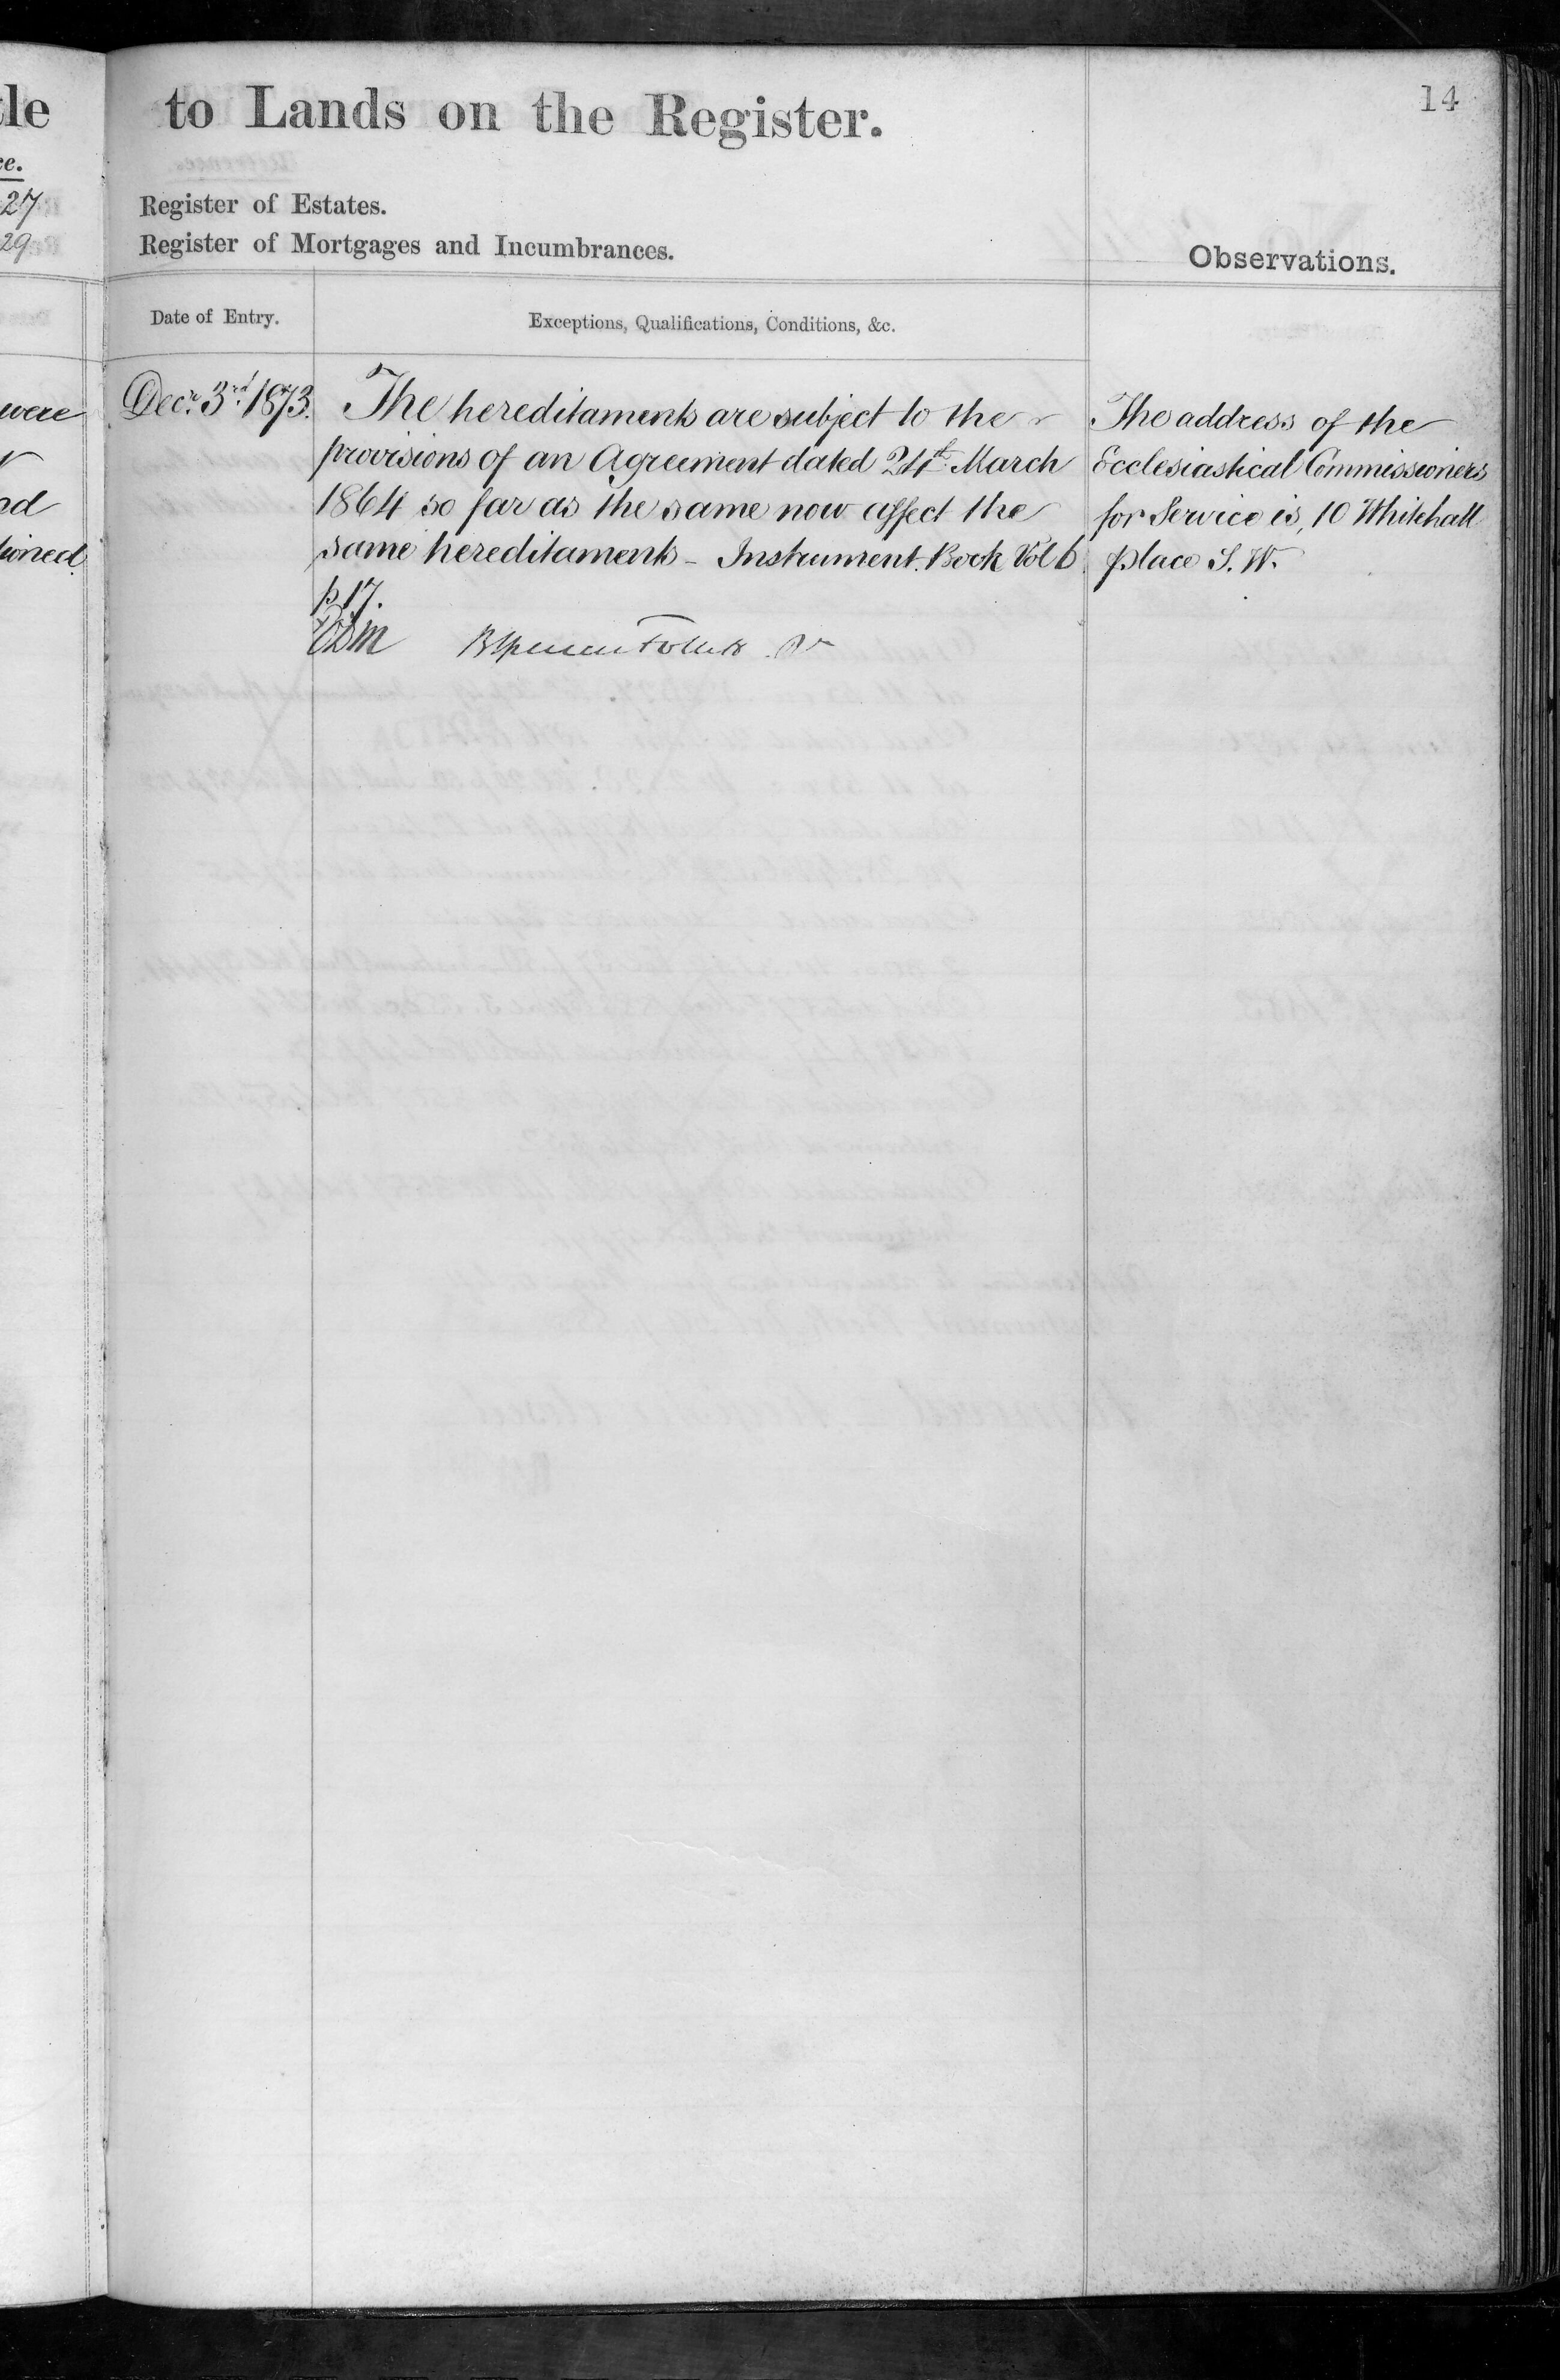 tle
ce.
27
29
were
ed
tioned.
to Lands on the Register.
14
Register of Estates.
Register of Mortgages and Incumbrances.
Observations.
Date of Entry.
Exceptions, Qualifications, Conditions, &c.
Decr. 3rd 1873.
The hereditaments are subject to the
provisions of an Agreement dated 24th March
1864 so far as the same now affect the
same hereditaments - Instrument Book Vol 6
p 17.
The address of the
Ecclesiastical Commissioners
for Service is, 10 Whitehall
place S. W.